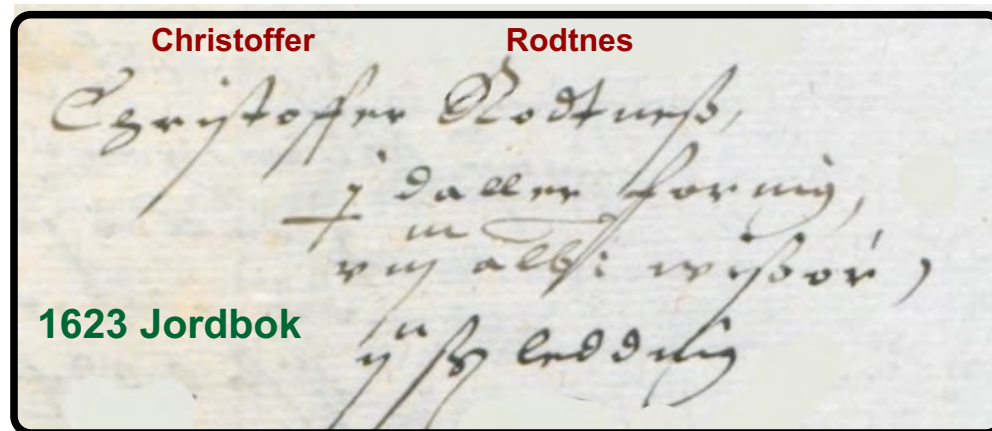 Christoffer Rodtnes
Christoffer Rodtneß,
j daller foring,
viij alb: wißör,
ij ß leddinig
1623 Jordbok